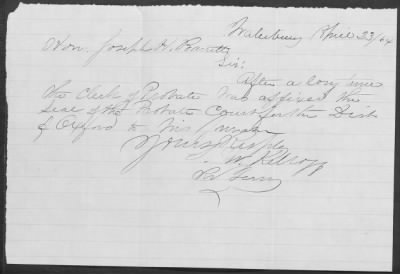 Waterbury April 23/64
Hon. Joseph H. Barrett
Sir;
After a long time
the Clerk of Probate has affixed the
Seal of the Probate Court for the Dist
of Oxford to this
Yours Resply
W. Kellogg